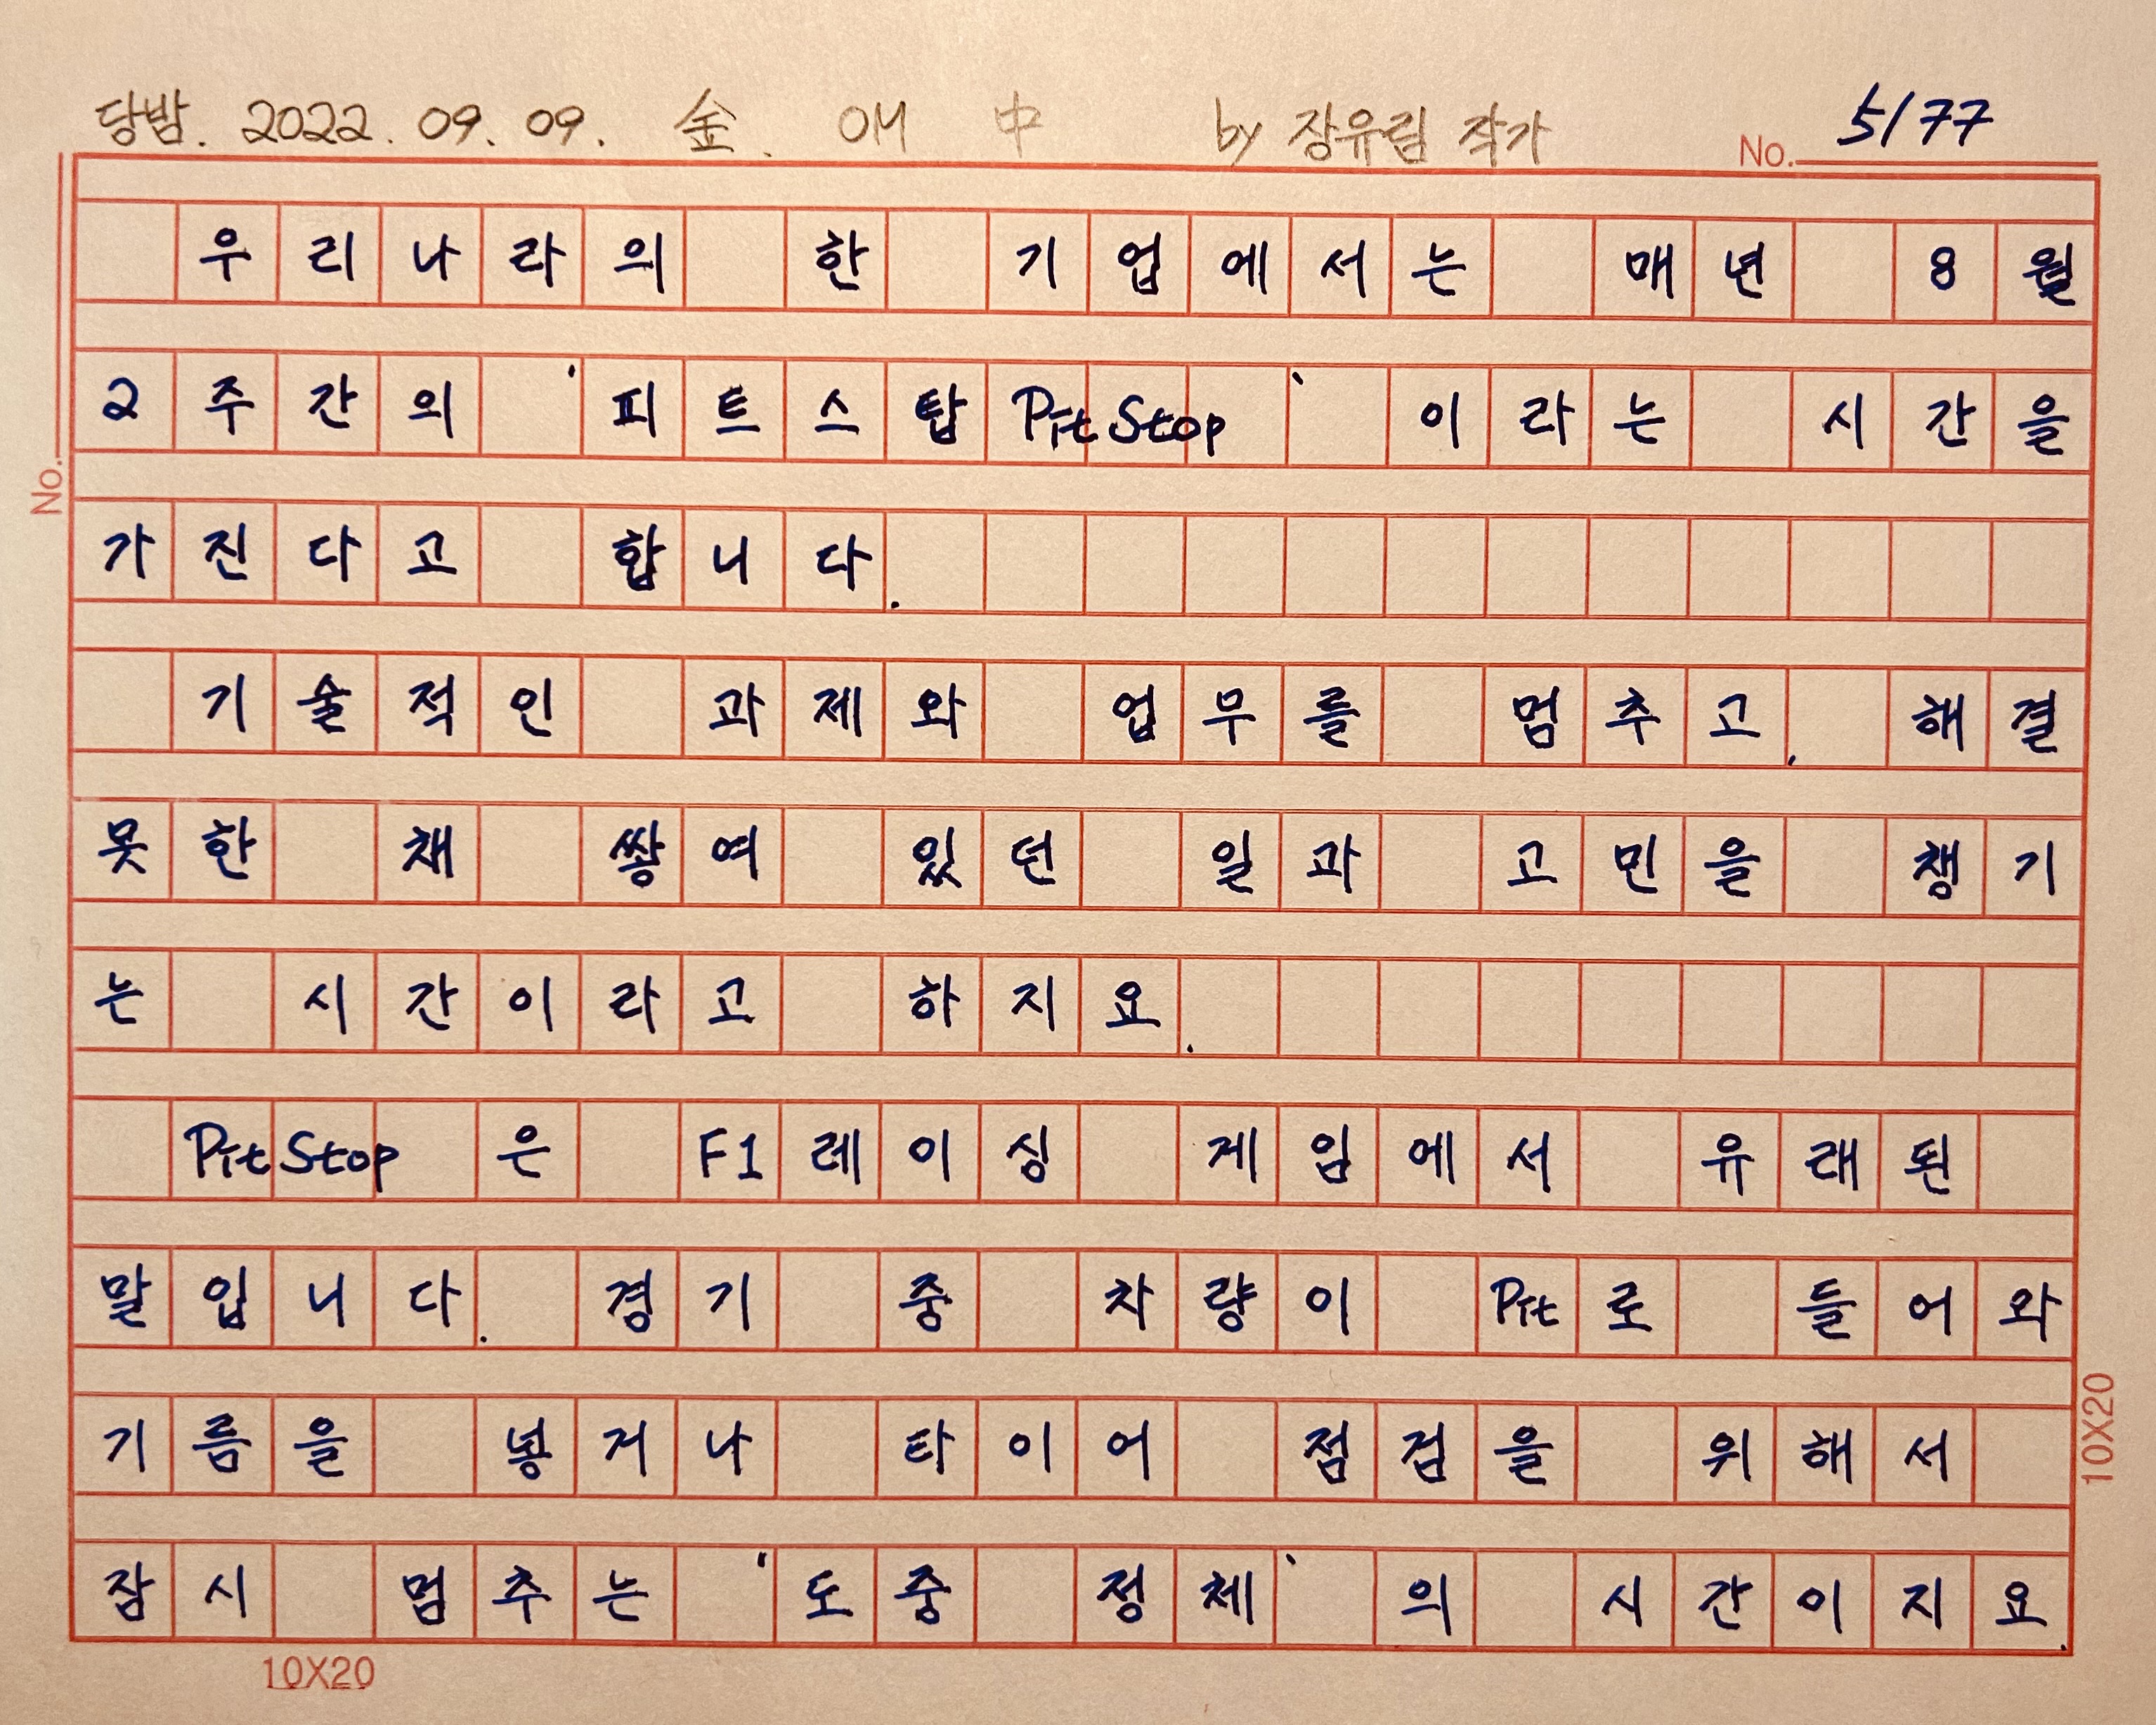 당밤. 2022. 09. 09. 金. 애 中 by 장유림 작가 No. 5/77
우리나라의 한 기업에서는 매년 8월
2주간의 '피트스탑Pit Stop'이라는 시간을
가진다고 합니다.
기술적인 과제와 업무를 멈추고, 해결
못한 채 쌓여 있던 일과 고민을 챙기
는 시간이라고 하지요.
Pit Stop은 F1레이싱 게임에서 유래된
말입니다. 경기 중 차량이 Pit로 들어와
기름을 넣거나 타이어 점검을 위해서
잠시 멈추는 '도중 정체'의 시간이지요.
No.
10X20
10X20